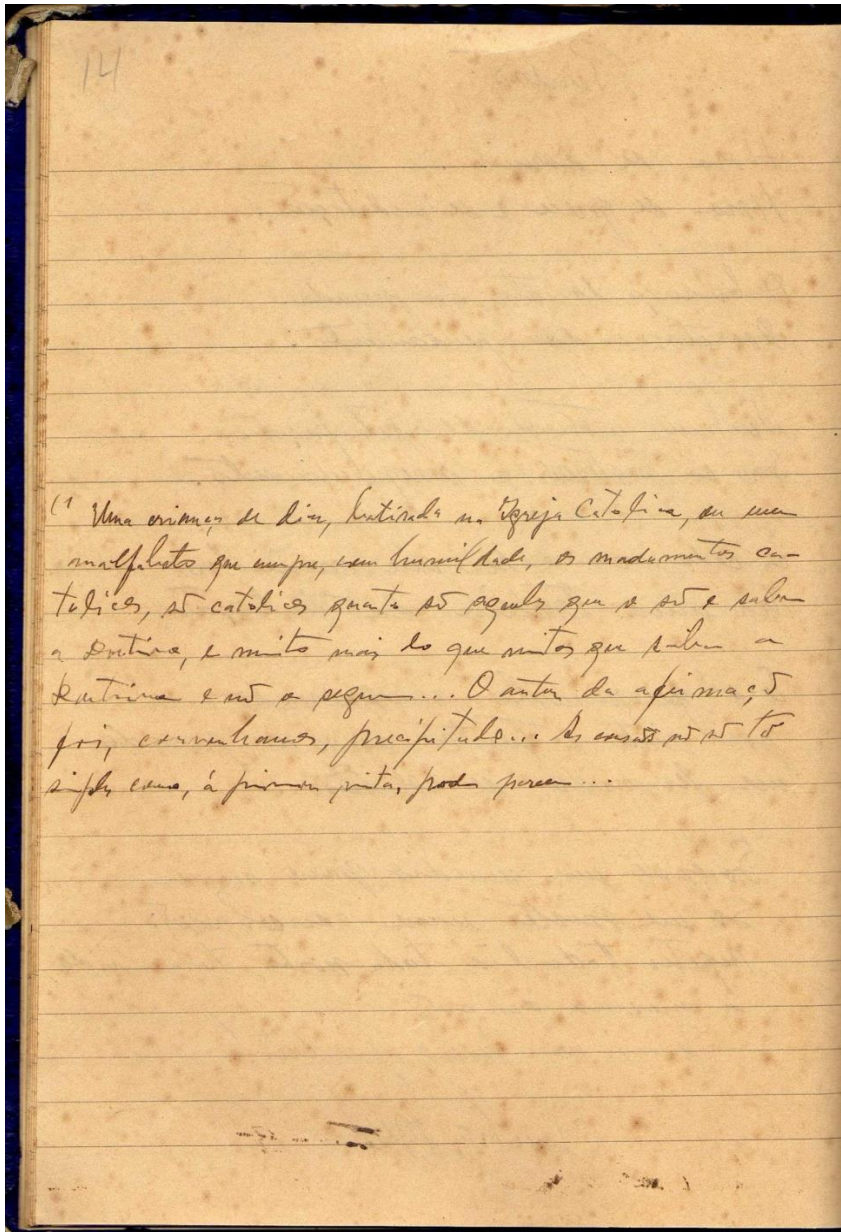 14
(1 Uma criança de dias, batizada na Igreja Catolica, ou um
analfabeto que cumpre, com humildade, os madamentos ca-
tolicos, sõ catolicos quanto sõ aqueles que o sõ e sabem
a Doutrina, e muito mais do que muitos que sabem a
Doutrina e nõ a seguem... O autor da afirmaçõ
foi, convenhamos, precipitado... As cousas nõ sõ tõ
simples como, á primeira vista, pode parecer...